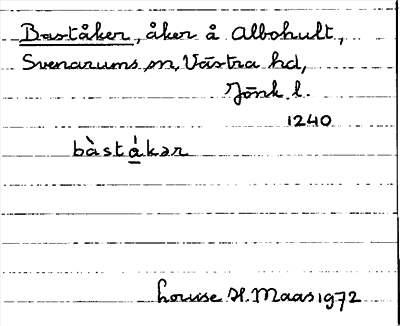 Baståker, åker å Albohult,
Svenarums sn, Västra hd,
Jönk. l.
1240
bàstå̀kər
Louise H. Maas 1972